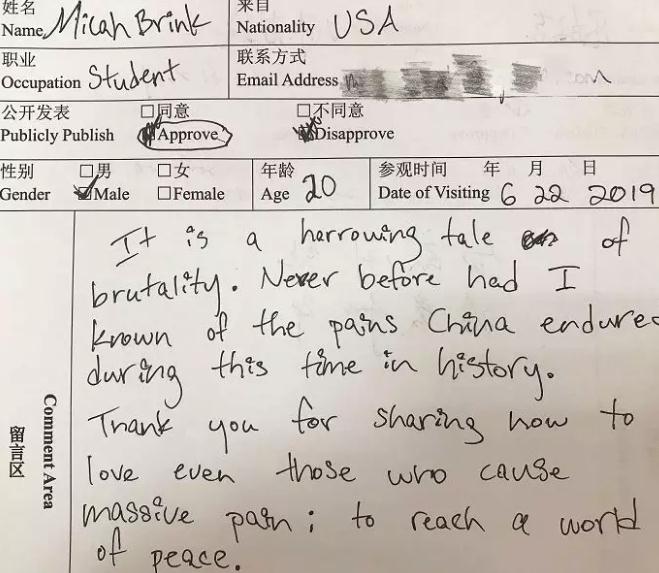 姓名 来自
Name Micah Brink Nationality USA
职业 联系方式
Occupation Student Email Address
公开发表 □同意 □不同意
Publicly Publish Approve Disapprove
性别 □男 □女 年龄 参观时间 年 月 日
Gender Male □Female Age 20 Date of Visiting 6 22 2019
It is a harrowing tale of
brutality. Never before had I
known of the pains China endured
during this time in history.
Thank you for sharing how to
love even those who cause
massive pain; to reach a world
of peace.
留言区
Comment Area